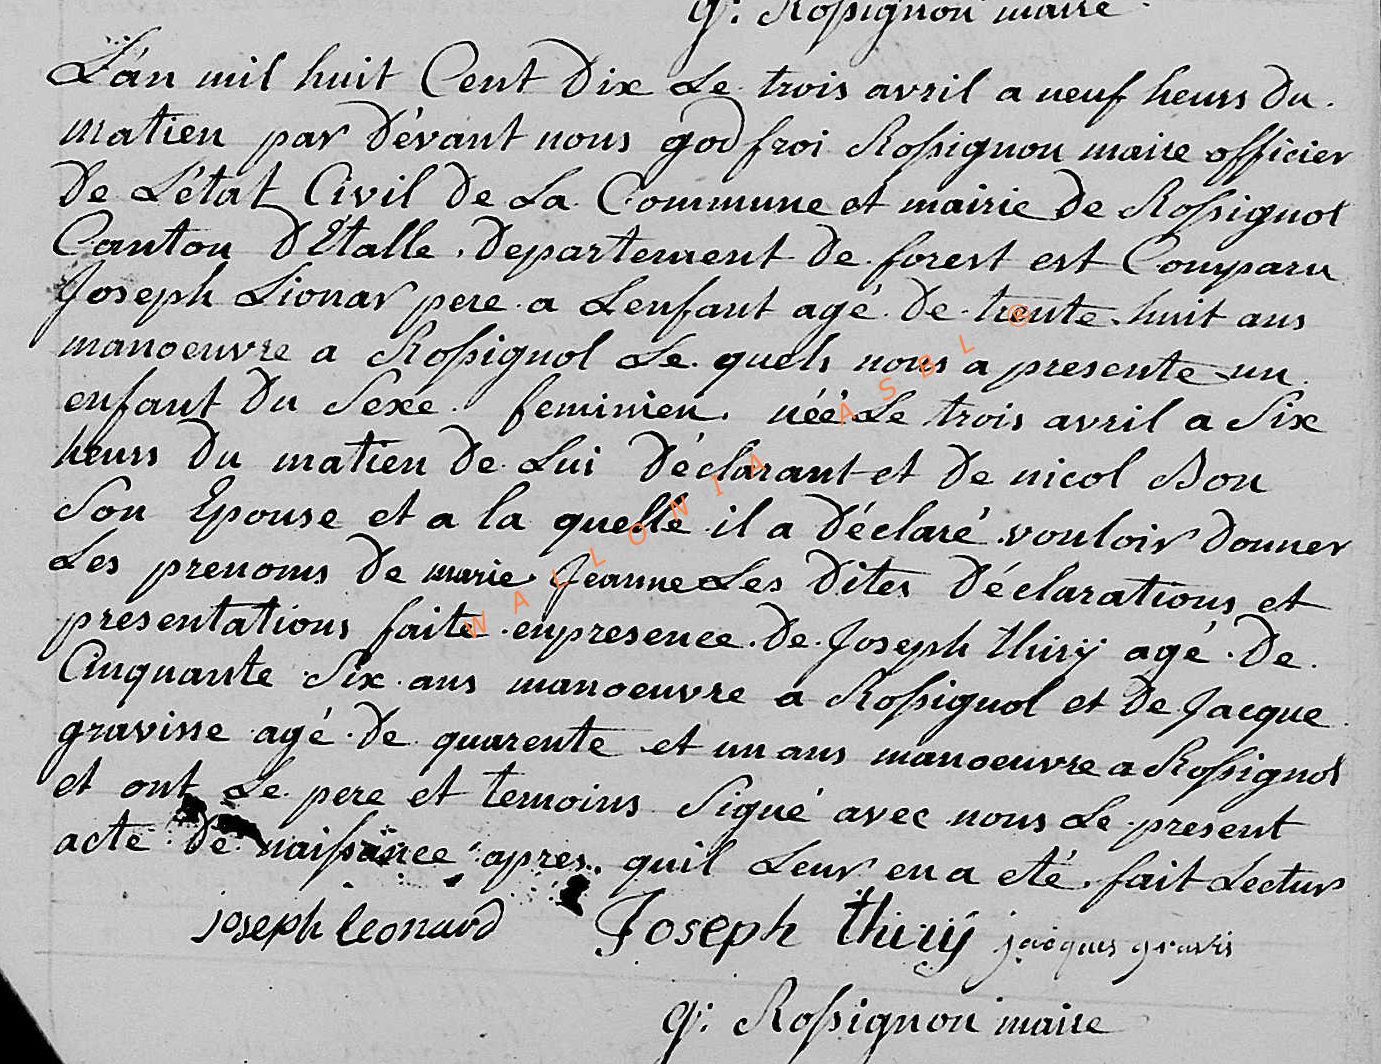 g: Rossignon maire
L'an mil huit Cent Dix Le trois avril a neuf heurs du
matien par dévant nous godfroi Rossignon maire officier
De L'état Civil de La Commune et mairie de Rossignol
Canton d'Etalle departement de forest est Comparu
Joseph Lionar pere a Lenfant agé de trente huit ans
manoeuvre a Rossignol Le quels nous a presente un
enfant du Sexe feminien néé Le trois avril a Six
heurs du matien de Lui déclarant et de nicol Bon
Son Epouse et a la quelle il a déclaré vouloir donner
Les prenoms de marie Jeanne Les dites déclarations et
presentations faite enpresence de Joseph thirÿ agé de
Cinquante Six ans manoeuvre a Rossignol et de Jacque
gravisse agé de quarente et un ans manoeuvre a Rossignol
et ont Le pere et temoins Signé avec nous Le present
acte de naissance apres quil Leur en a eté fait Lectur
joseph leonard Joseph thirÿ jacques gravis
g: Rossignon maire
WALLONIA ASBL ©